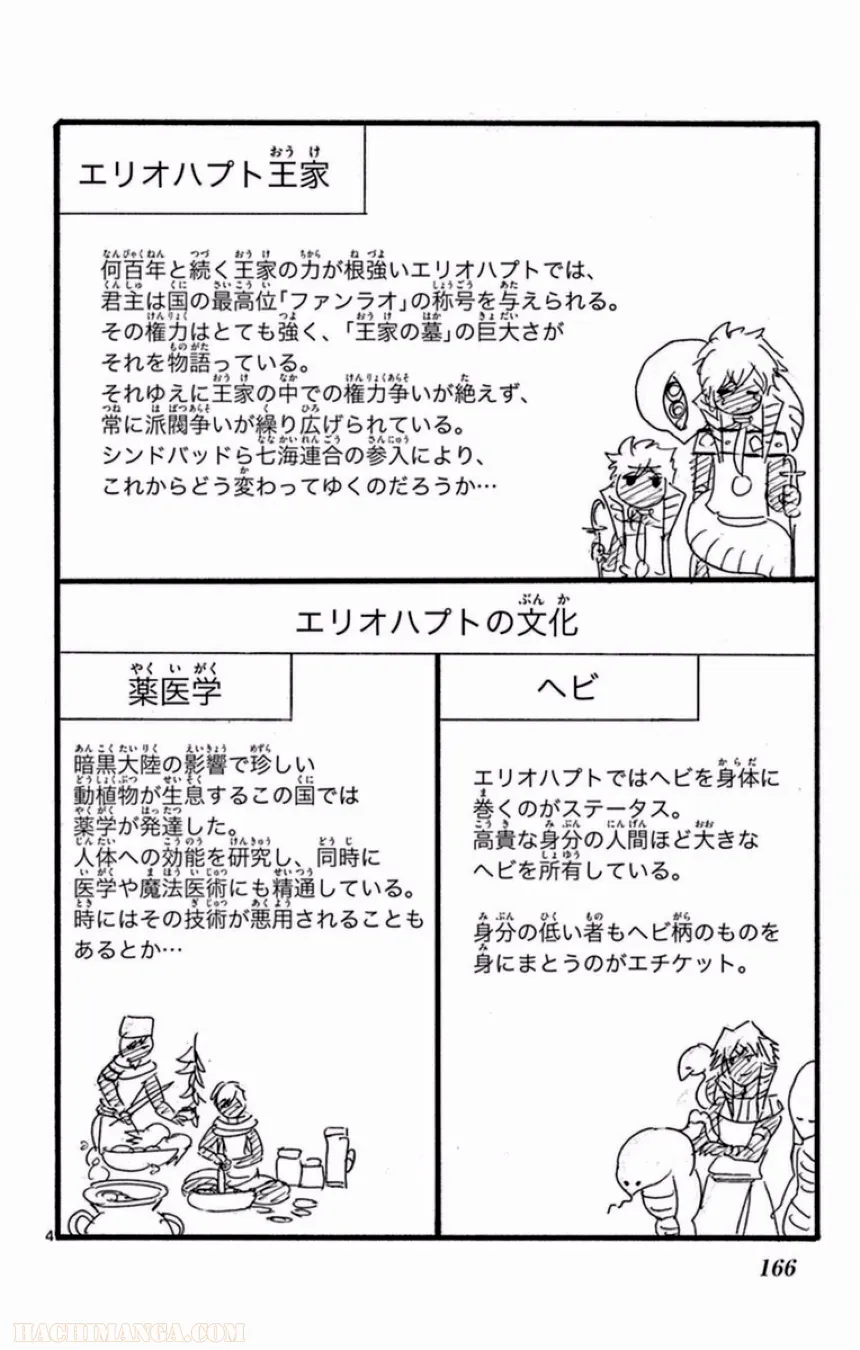 エリオハプト王家
何百年と続く王家の力が根強いエリオハプトでは、
君主は国の最高位「ファンラオ」の称号を与えられる。
その権力はとても強く、「王家の墓」の巨大さが
それを物語っている。
それゆえに王家の中での権力争いが絶えず、
常に派閥争いが繰り広げられている。
シンドバッドら七海連合の参入により、
これからどう変わってゆくのだろうか…
エリオハプトの文化
薬医学
暗黒大陸の影響で珍しい
動植物が生息するこの国では
薬学が発達した。
人体への効能を研究し、同時に
医学や魔法医術にも精通している。
時にはその技術が悪用されることも
あるとか…
ヘビ
エリオハプトではヘビを身体に
巻くのがステータス。
高貴な身分の人間ほど大きな
ヘビを所有している。
身分の低い者もヘビ柄のものを
身にまとうのがエチケット。
4
166
HACHIMANGA.COM